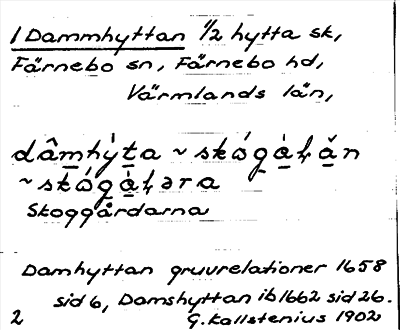 1 Dammhyttan 1/2 hytta sk,
Färnebo sn, Färnebo hd,
Värmlands län,
dâmhy̍ta ~ skó̱gà̱ɦǎ̱n
~ skó̱gà̱ɦəra
Skoggårdarna
Damhyttan gruvrelationer 1658
sid 6, Damshyttan ib 1662 sid 26.
2 G. Kallstenius 1902